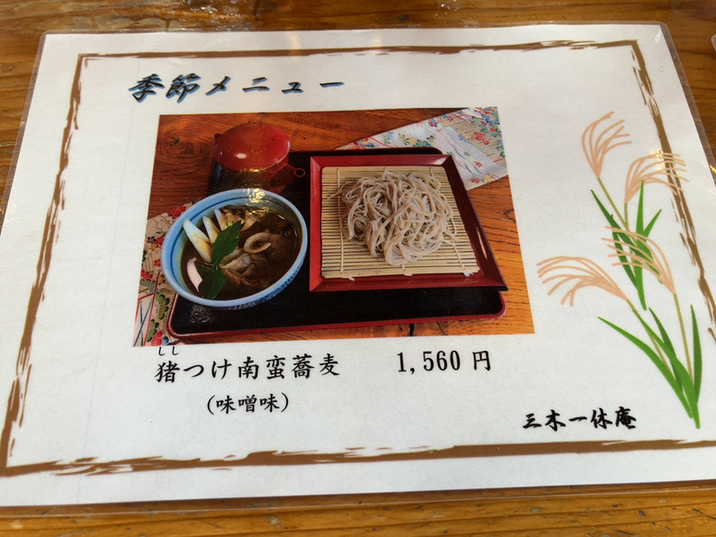 季節メニュー
しし
猪つけ南蛮蕎麦　1,560 円
(味噌味)
三木一休庵